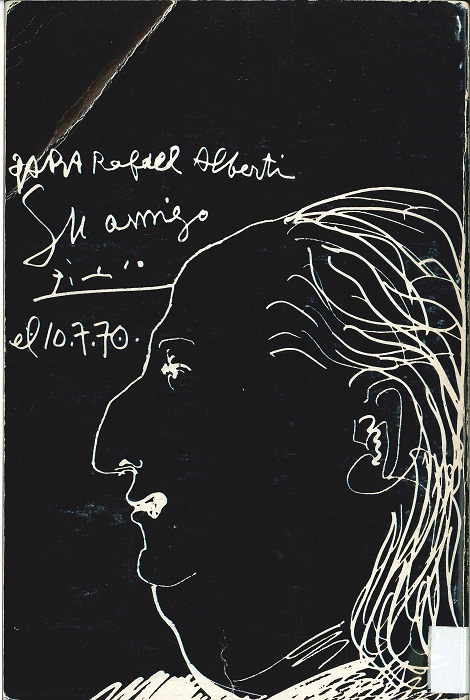 PARA Rafael Alberti
Su amigo
el 10.7.70.